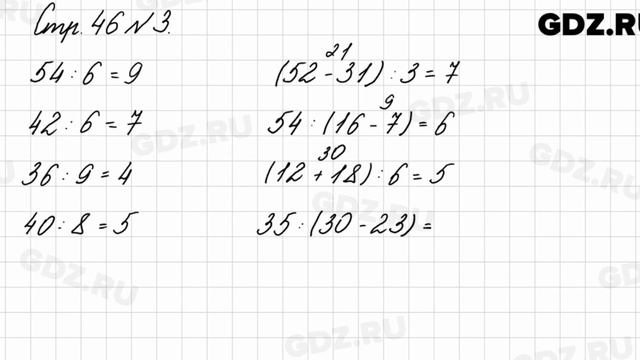 Стр. 46 № 3.
GDZ.RU
54 : 6 = 9
42 : 6 = 7
36 : 9 = 4
40 : 8 = 5
21
(52 - 31) : 3 = 7
9
54 : (16 - 7) = 6
30
(12 + 18) : 6 = 5
35 : (30 - 23) =
GDZ.RU
GDZ.RU
GDZ.RU
GDZ.RU
GDZ.RU
GDZ.RU